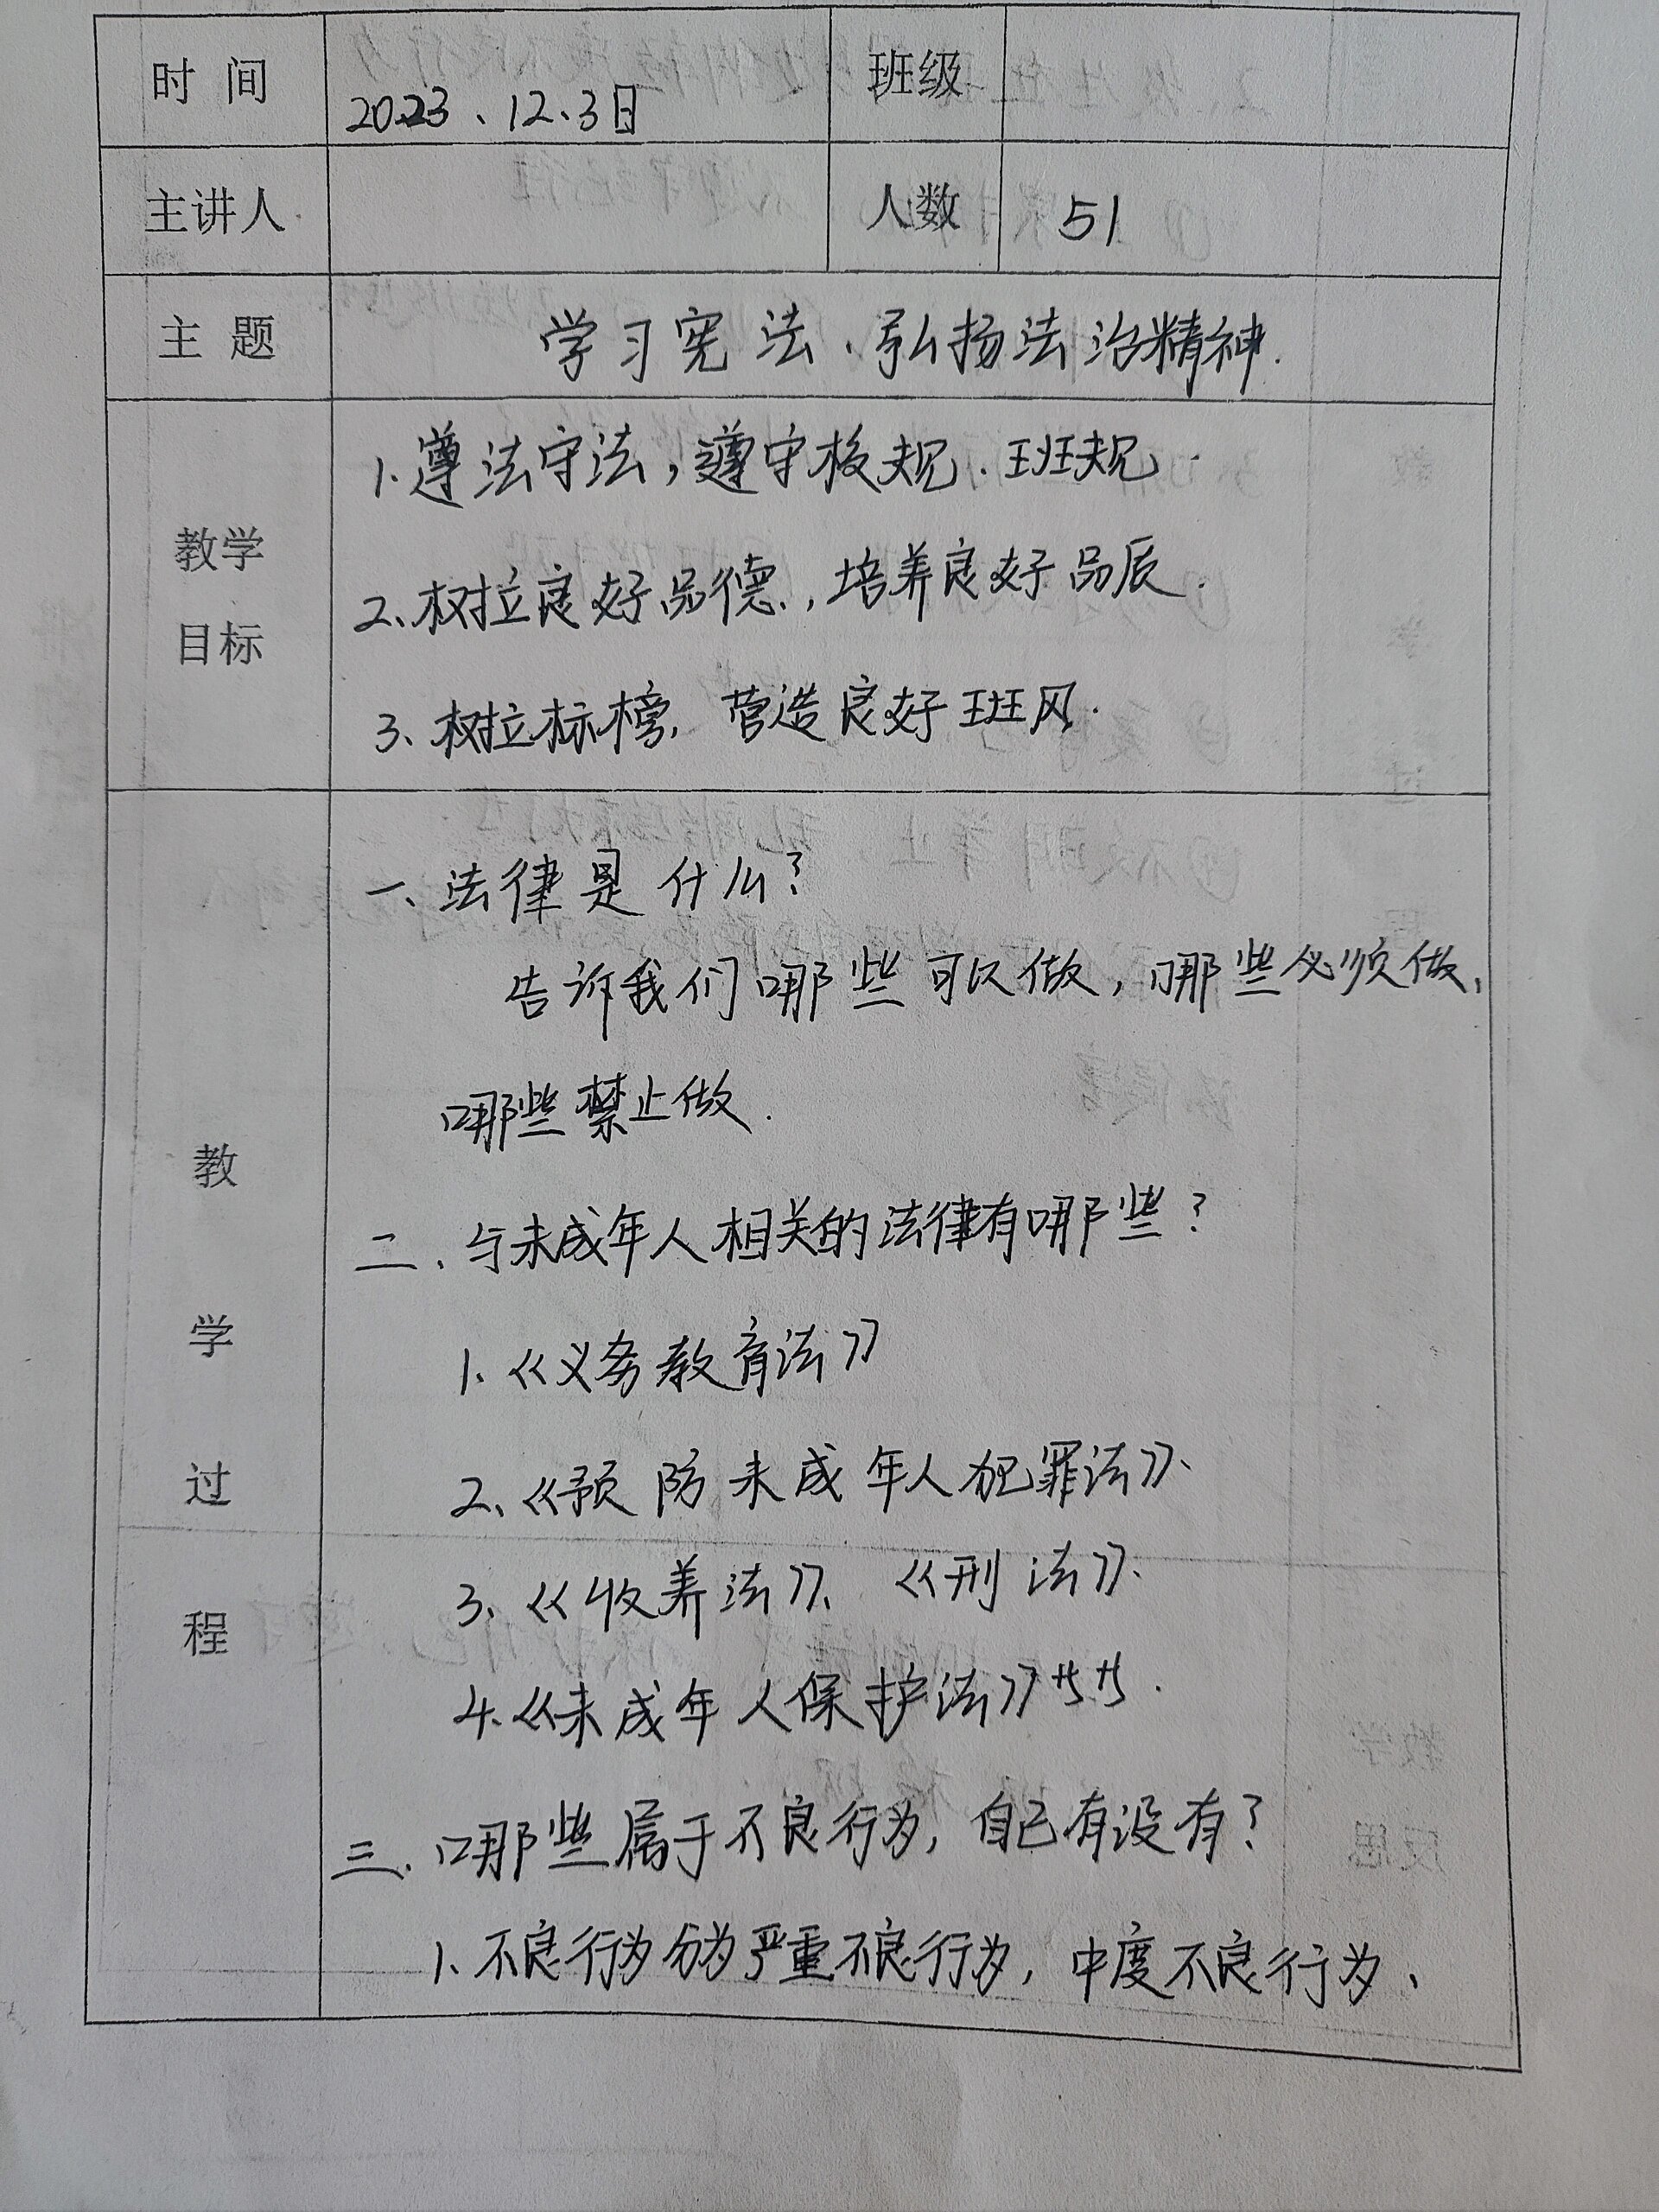 时 间 2023、12、3日 班级
主讲人 人数 51
主 题 学习宪法、弘扬法治精神.
教学
目标
1.遵法守法，遵守校规、班规
2、树立良好品德，培养良好品质.
3、树立标榜，营造良好班风.
教
学
过
程
一、法律是什么？
告诉我们哪些可以做，哪些必须做，
哪些禁止做.
二、与未成年人相关的法律有哪些？
1、《义务教育法》
2、《预防未成年人犯罪法》、
3、《收养法》、《刑法》.
4.《未成年人保护法》等等.
三、哪些属于不良行为，自己有没有？
1、不良行为分为严重不良行为，中度不良行为、